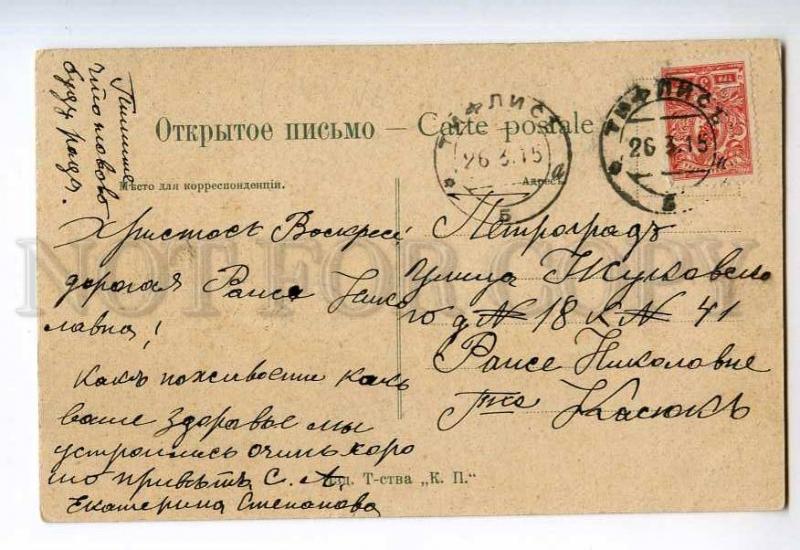 Пишите
что новово
буду рада.
Открытое письмо — Carte postale
Мѣсто для корреспонденціи.
Адресъ.
ТИФЛИСЪ
26 3.15
а
Б
ТИФЛИСЪ
26 3.15
Б
Христосъ Воскресе!
дорогая Раиса Нико
лавна!
Какъ поживаете какъ
ваше здоровье мы
устроились очинь хоро
шо привѣтъ С. А.
Екатерина Степанова
Петроградъ
улица Жуковско
го д № 18 к № 41
Раисе Николовне
Гжа Касюкъ
Изд. Т-ства „К. П."
NOT FOR COPY